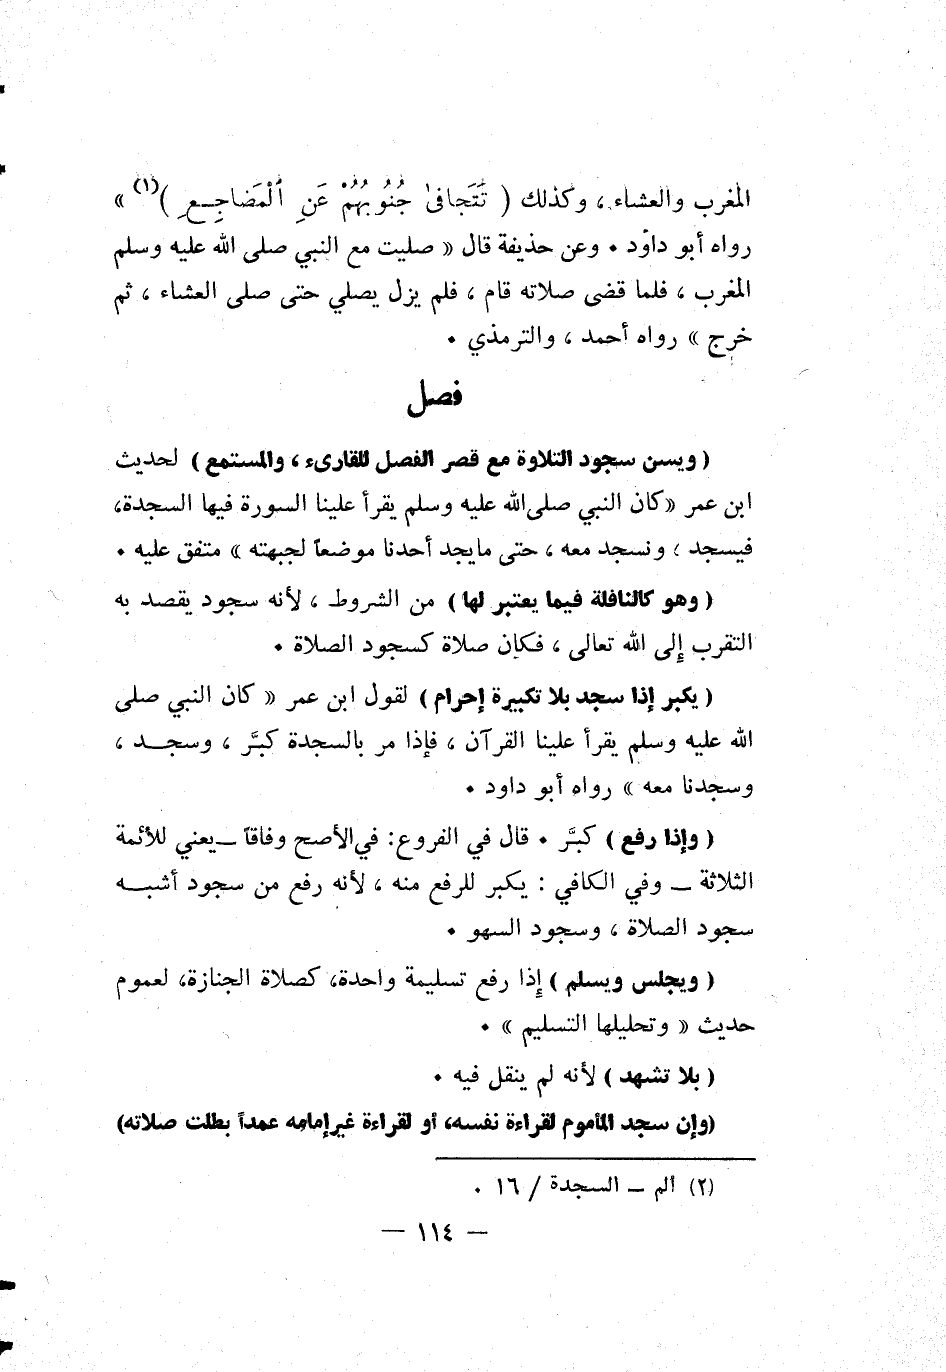 المغرب والعشاء ، وكذلك ( تَتَجافىٰ جُنُوبُهُمْ عَنِ ٱلْمَضاجِعِ )(١) »
رواه أبو داوُد ٠ وعن حذيفة قال « صليت مع النبي صلى الله عليه وسلم
المغرب ، فلما قضى صلاته قام ، فلم يزل يصلي حتى صلى العشاء ، ثم
خرج » رواه أحمد ، والترمذي ٠
فصل
( ويسن سجود التلاوة مع قصر الفصل للقارىء ، والمستمع ) لحديث
ابن عمر «كان النبي صلى الله عليه وسلم يقرأ علينا السورة فيها السجدة،
فيسجد ، ونسجد معه ، حتى مايجد أحدنا موضعاً لجبهته » متفق عليه ٠
( وهو كالنافلة فيما يعتبر لها ) من الشروط ، لأنه سجود يقصد به
التقرب إلى الله تعالى ، فكان صلاة كسجود الصلاة ٠
( يكبر إذا سجد بلا تكبيرة إحرام ) لقول ابن عمر « كان النبي صلى
الله عليه وسلم يقرأ علينا القرآن ، فإذا مر بالسجدة كبَّر ، وسجــد ،
وسجدنا معه » رواه أبو داود ٠
( وإذا رفع ) كبَّر ٠ قال في الفروع: في الأصح وفاقاً ــ يعني للأئمة
الثلاثة ــ وفي الكافي : يكبر للرفع منه ، لأنه رفع من سجود أشبــه
سجود الصلاة ، وسجود السهو ٠
( ويجلس ويسلم ) إذا رفع تسليمة واحدة، كصلاة الجنازة، لعموم
حديث « وتحليلها التسليم » ٠
( بلا تشهد ) لأنه لم ينقل فيه ٠
(وإن سجد المأموم لقراءة نفسه، أو لقراءة غير إمامه عمداً بطلت صلاته)
(٢) ألم ــ السجدة / ١٦ ٠
— ١١٤ —